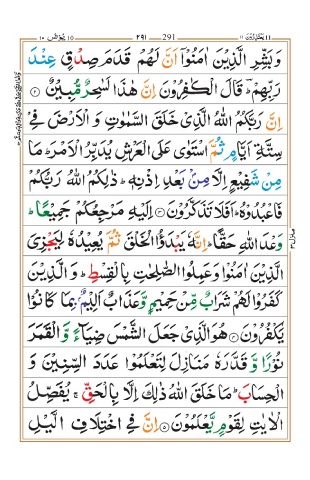 یونس ۱۰ ۲۹۱ 291 یعتذرون ۱۱
وَ بَشِّرِ الَّذِیْنَ اٰمَنُوْۤا اَنَّ لَهُمْ قَدَمَ صِدْقٍ عِنْدَ
رَبِّهِمْ ؕ قَالَ الْکٰفِرُوْنَ اِنَّ هٰذَا لَسٰحِرٌ مُّبِیْنٌ ۝۲
اِنَّ رَبَّکُمُ اللّٰهُ الَّذِیْ خَلَقَ السَّمٰوٰتِ وَ الْاَرْضَ فِیْ
سِتَّةِ اَیَّامٍ ثُمَّ اسْتَوٰی عَلَی الْعَرْشِ یُدَبِّرُ الْاَمْرَ ؕ مَا
مِنْ شَفِیْعٍ اِلَّا مِنْۢ بَعْدِ اِذْنِهٖ ؕ ذٰلِکُمُ اللّٰهُ رَبُّکُمْ
فَاعْبُدُوْهُ ؕ اَفَلَا تَذَکَّرُوْنَ ۝۳ اِلَیْهِ مَرْجِعُکُمْ جَمِیْعًا ؕ
وَعْدَ اللّٰهِ حَقًّا ؕ اِنَّهٗ یَبْدَؤُا الْخَلْقَ ثُمَّ یُعِیْدُهٗ لِیَجْزِیَ
الَّذِیْنَ اٰمَنُوْا وَعَمِلُوا الصّٰلِحٰتِ بِالْقِسْطِ ؕ وَ الَّذِیْنَ
کَفَرُوْا لَهُمْ شَرَابٌ مِّنْ حَمِیْمٍ وَّ عَذَابٌ اَلِیْمٌۢ بِمَا کَانُوْا
یَکْفُرُوْنَ ۝۴ هُوَ الَّذِیْ جَعَلَ الشَّمْسَ ضِیَآءً وَّ الْقَمَرَ
نُوْرًا وَّ قَدَّرَهٗ مَنَازِلَ لِتَعْلَمُوْا عَدَدَ السِّنِیْنَ وَ
الْحِسَابَ ؕ مَا خَلَقَ اللّٰهُ ذٰلِکَ اِلَّا بِالْحَقِّ ۚ یُفَصِّلُ
الْاٰیٰتِ لِقَوْمٍ یَّعْلَمُوْنَ ۝۵ اِنَّ فِی اخْتِلَافِ الَّیْلِ
منزل ۳